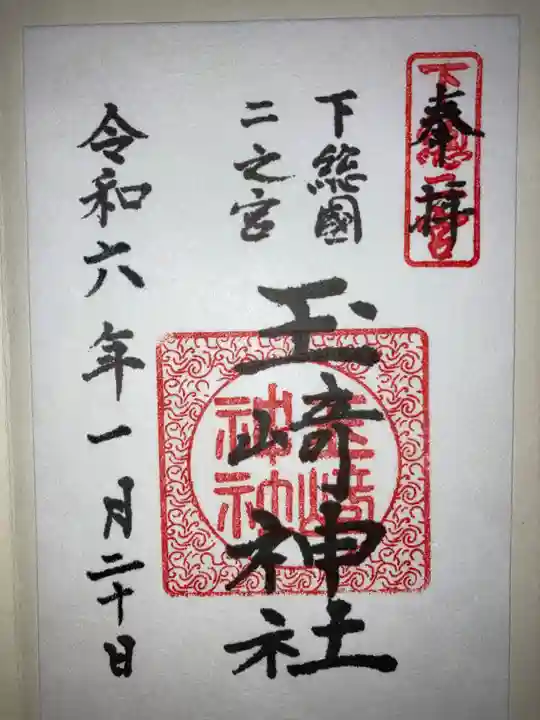 奉拝
下総二宮
下総國
二之宮
玉﨑神社
玉﨑
神社
令和六年一月二十日